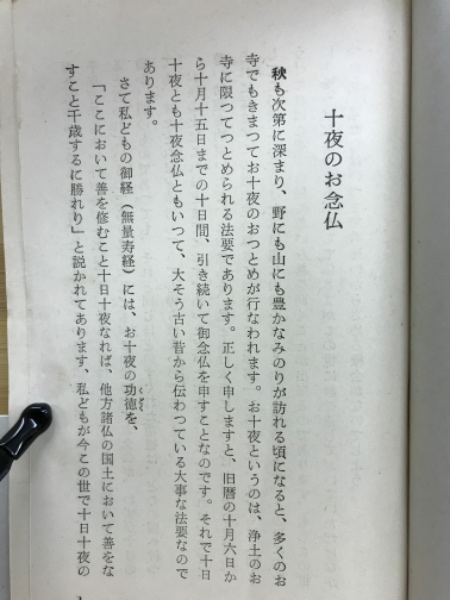 十夜のお念仏
秋も次第に深まり、野にも山にも豊かなみのりが訪れる頃になると、多くのお
寺でもきまつてお十夜のおつとめが行なわれます。お十夜というのは、浄土のお
寺に限つてつとめられる法要であります。正しく申しますと、旧暦の十月六日か
ら十月十五日までの十日間、引き続いて御念仏を申すことなのです。それで十日
十夜とも十夜念仏ともいつて、大そう古い昔から伝わつている大事な法要なので
あります。
さて私どもの御経（無量寿経）には、お十夜の功徳を、
「ここにおいて善を修むこと十日十夜なれば、他方諸仏の国土において善をな
すこと千歳するに勝れり」と説かれてあります、私どもが今この世で十日十夜の